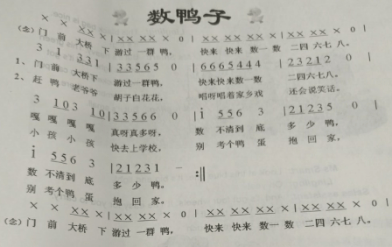 数鸭子
X X XX X | XX XX X 0 | XX XX XX X | XX XX X 0 |
(念)门 前 大桥 下 游过 一群 鸭, 快来 快来 数一 数 二四 六七 八。
3 1 331 | 33565 0 | 66654444 | 23212 0 |
1、门 前 大桥下 游过一群鸭, 快来快来数一数 二四六七八。
2、赶 鸭 老爷爷 胡子白花花, 唱呀唱着家乡戏 还会说笑话。
3 103 10 | 33566 0 | i 556 3 | 21235 0 |
嘎 嘎 嘎 嘎 真呀真多呀, 数 不清到 底 多 少 鸭,
小 孩 小 孩 快去上学校, 别 考个鸭 蛋 抱 回 家,
i 556 3 | 21231 - :||
数 不清到 底 多 少 鸭。
别 考个鸭 蛋 抱 回 家。
X X XX X | XX XX X 0 | XX XX XX X | XX XX X 0 |
(念)门 前 大桥 下 游过 一群 鸭, 快来 快来 数一 数 二四 六七 八。